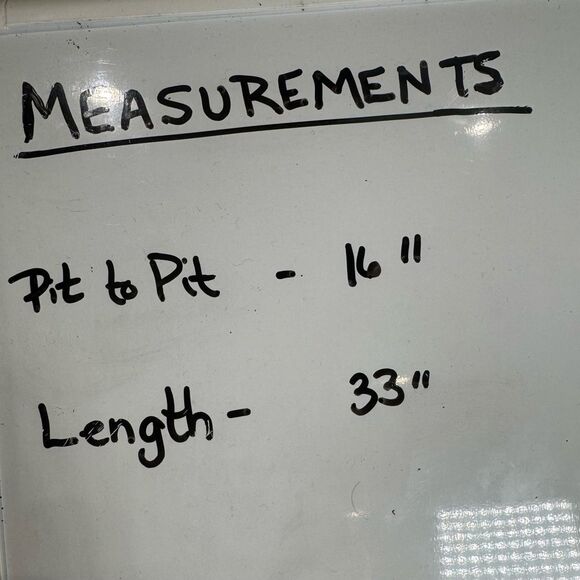 MEASUREMENTS
Pit to Pit - 16"
Length - 33"